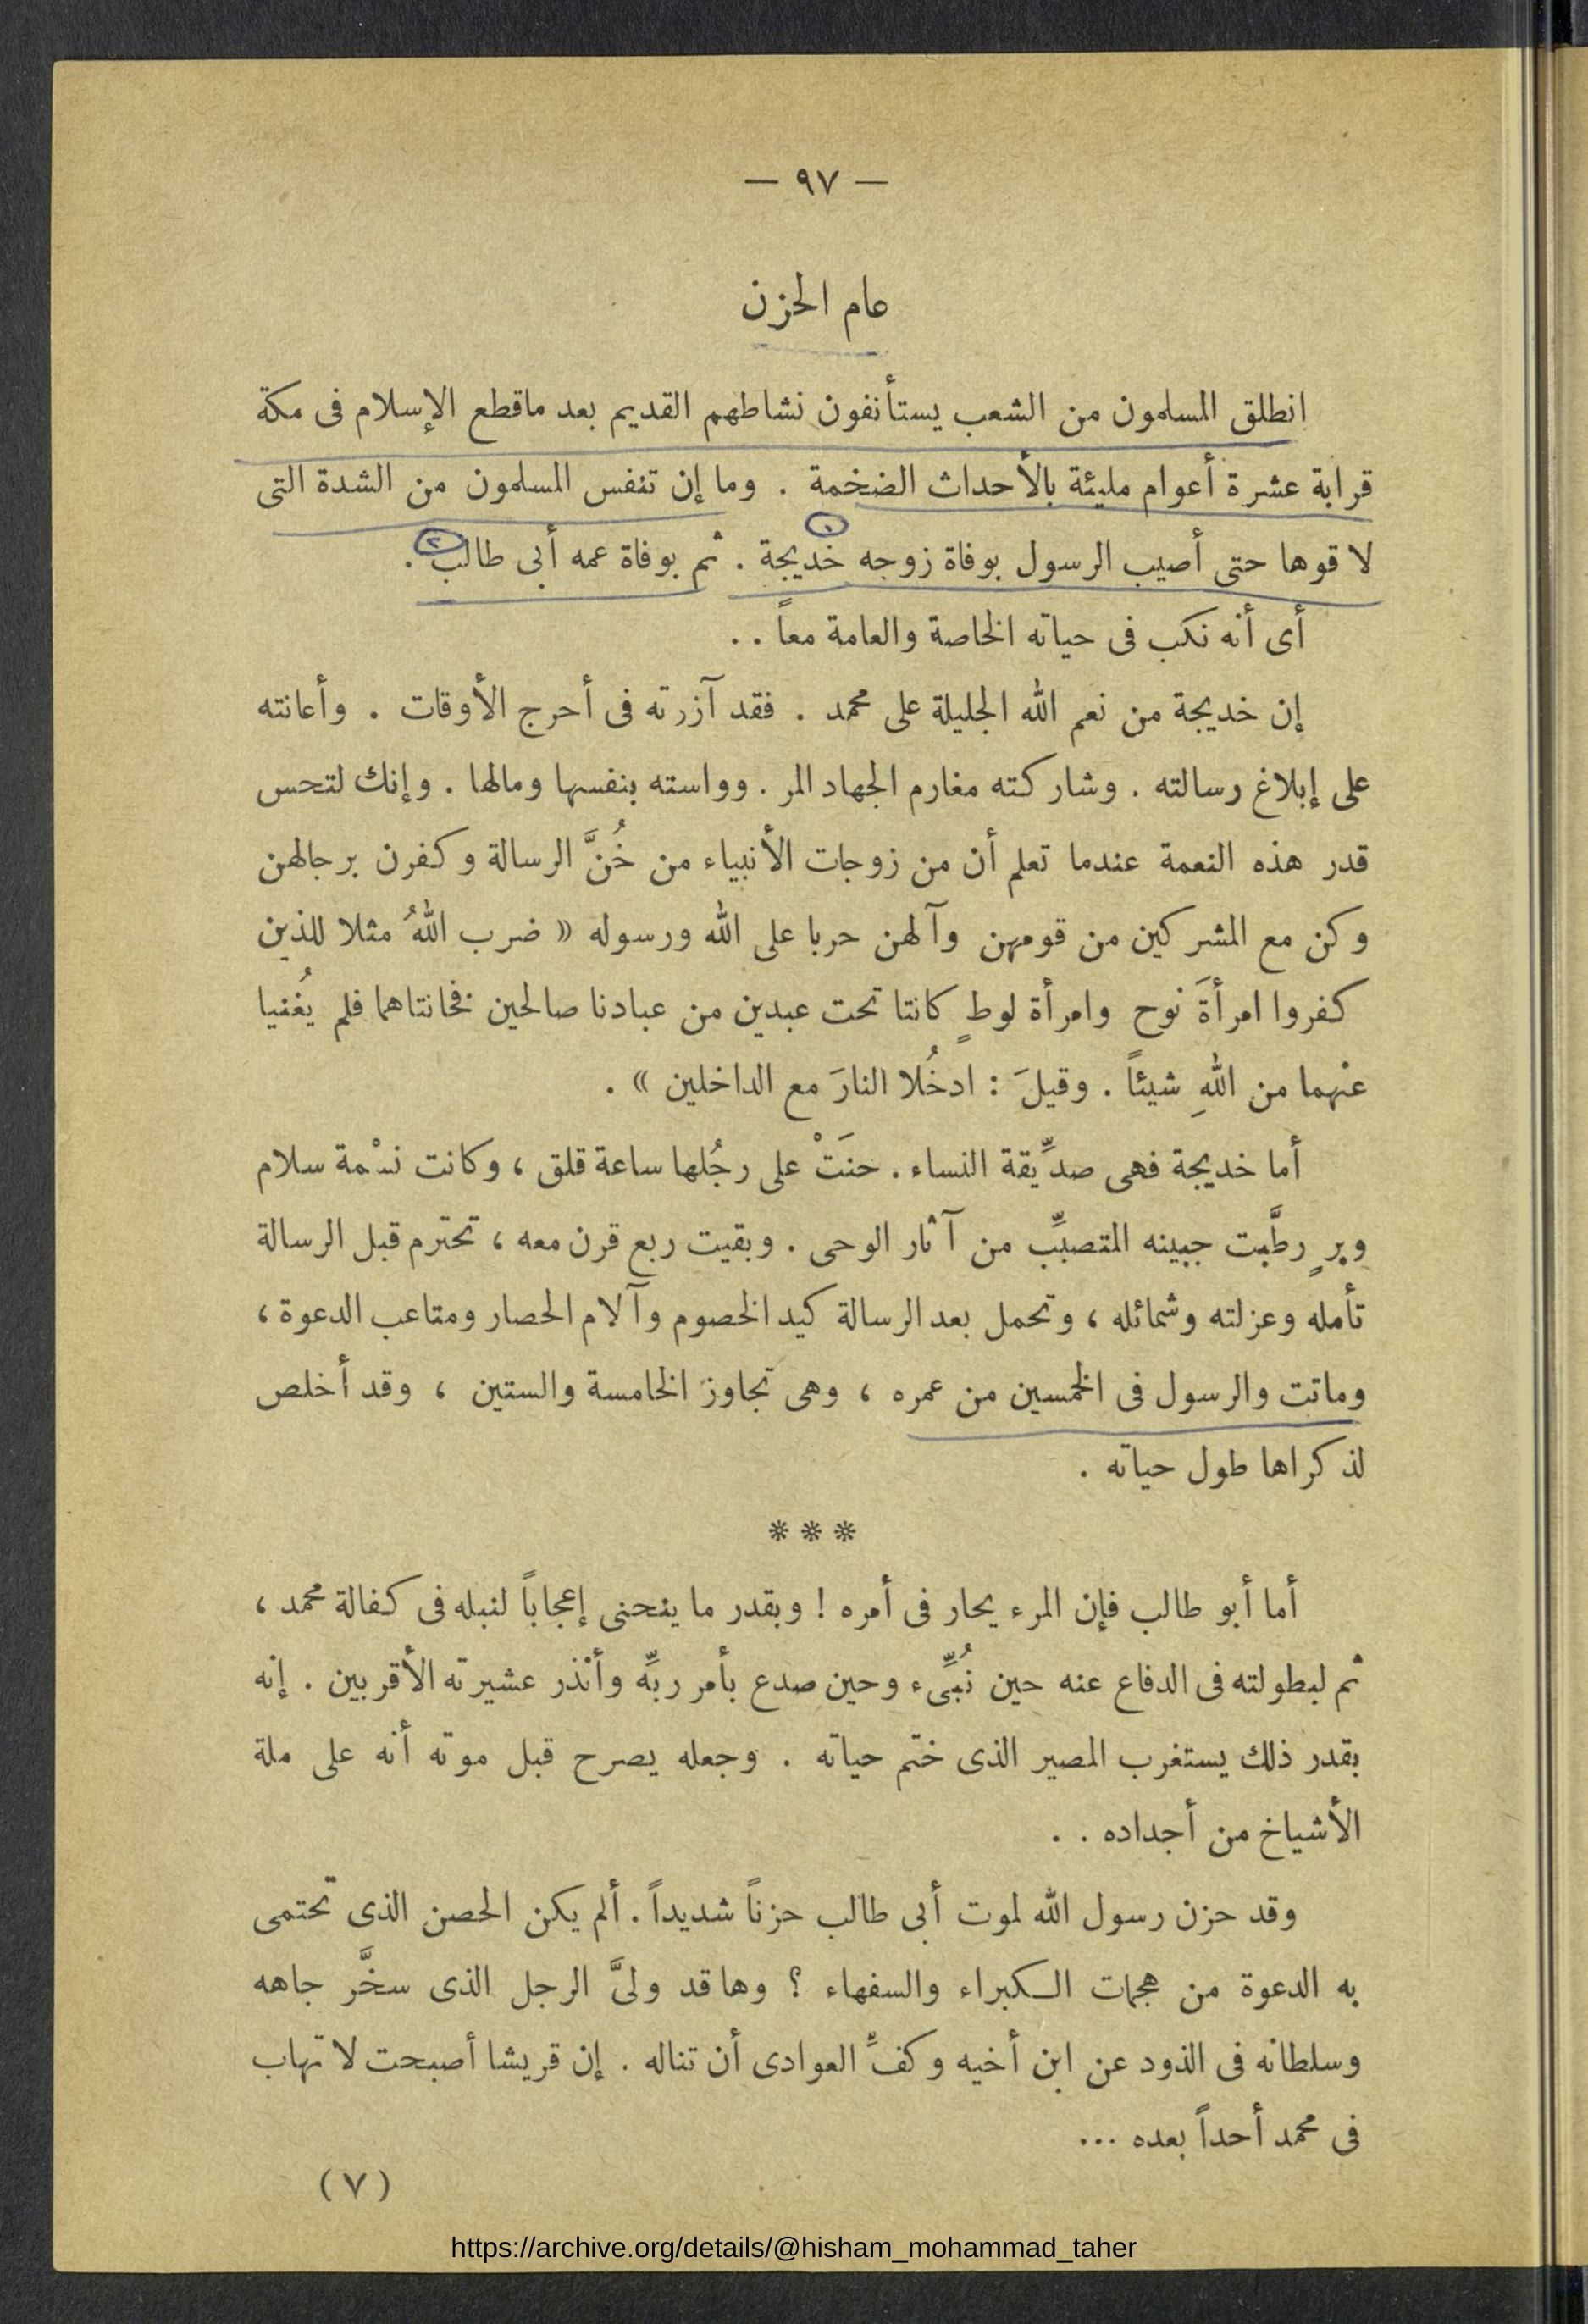 — ٩٧ —
عام الحزن
انطلق المسلمون من الشعب يستأنفون نشاطهم القديم بعد ماقطع الإسلام فى مكة
قرابة عشرة أعوام مليئة بالأحداث الضخمة . وما إن تنفس المسلمون من الشدة التى
لا قوها حتى أصيب الرسول بوفاة زوجه خديجة . ثم بوفاة عمه أبى طالب .
أى أنه نكب فى حياته الخاصة والعامة معاً . .
إن خديجة من نعم الله الجليلة على محمد . فقد آزرته فى أحرج الأوقات . وأعانته
على إبلاغ رسالته . وشاركته مغارم الجهاد المر . وواسته بنفسها ومالها . وإنك لتحس
قدر هذه النعمة عندما تعلم أن من زوجات الأنبياء من خُنَّ الرسالة وكفرن برجالهن
وكن مع المشركين من قومهن وآلهن حربا على الله ورسوله « ضرب اللهُ مثلا للذين
كفروا امرأةَ نوح وامرأة لوطٍ كانتا تحت عبدين من عبادنا صالحين فخانتاهما فلم يُغنيا
عنهما من اللهِ شيئاً . وقيلَ : ادخُلا النارَ مع الداخلين » .
أما خديجة فهى صدِّيقة النساء . حنَتْ على رجُلها ساعة قلق ، وكانت نسْمة سلام
وبرٍ رطَّبت جبينه المتصبِّب من آثار الوحى . وبقيت ربع قرن معه ، تحترم قبل الرسالة
تأمله وعزلته وشمائله ، وتحمل بعد الرسالة كيد الخصوم وآلام الحصار ومتاعب الدعوة ،
وماتت والرسول فى الخمسين من عمره ، وهى تجاوز الخامسة والستين ، وقد أخلص
لذكراها طول حياته .
* * *
أما أبو طالب فإن المرء يحار فى أمره ! وبقدر ما ينحنى إعجاباً لنبله فى كفالة محمد ،
ثم لبطولته فى الدفاع عنه حين نُبِّىء وحين صدع بأمر ربِّه وأنذر عشيرته الأقربين . إنه
بقدر ذلك يستغرب المصير الذى ختم حياته . وجعله يصرح قبل موته أنه على ملة
الأشياخ من أجداده . .
وقد حزن رسول الله لموت أبى طالب حزناً شديداً . ألم يكن الحصن الذى تحتمى
به الدعوة من هجمات الكبراء والسفهاء ؟ وها قد ولىَّ الرجل الذى سخَّر جاهه
وسلطانه فى الذود عن ابن أخيه وكفِّ العوادى أن تناله . إن قريشا أصبحت لا تهاب
فى محمد أحداً بعده ...
( ٧ )
https://archive.org/details/@hisham_mohammad_taher